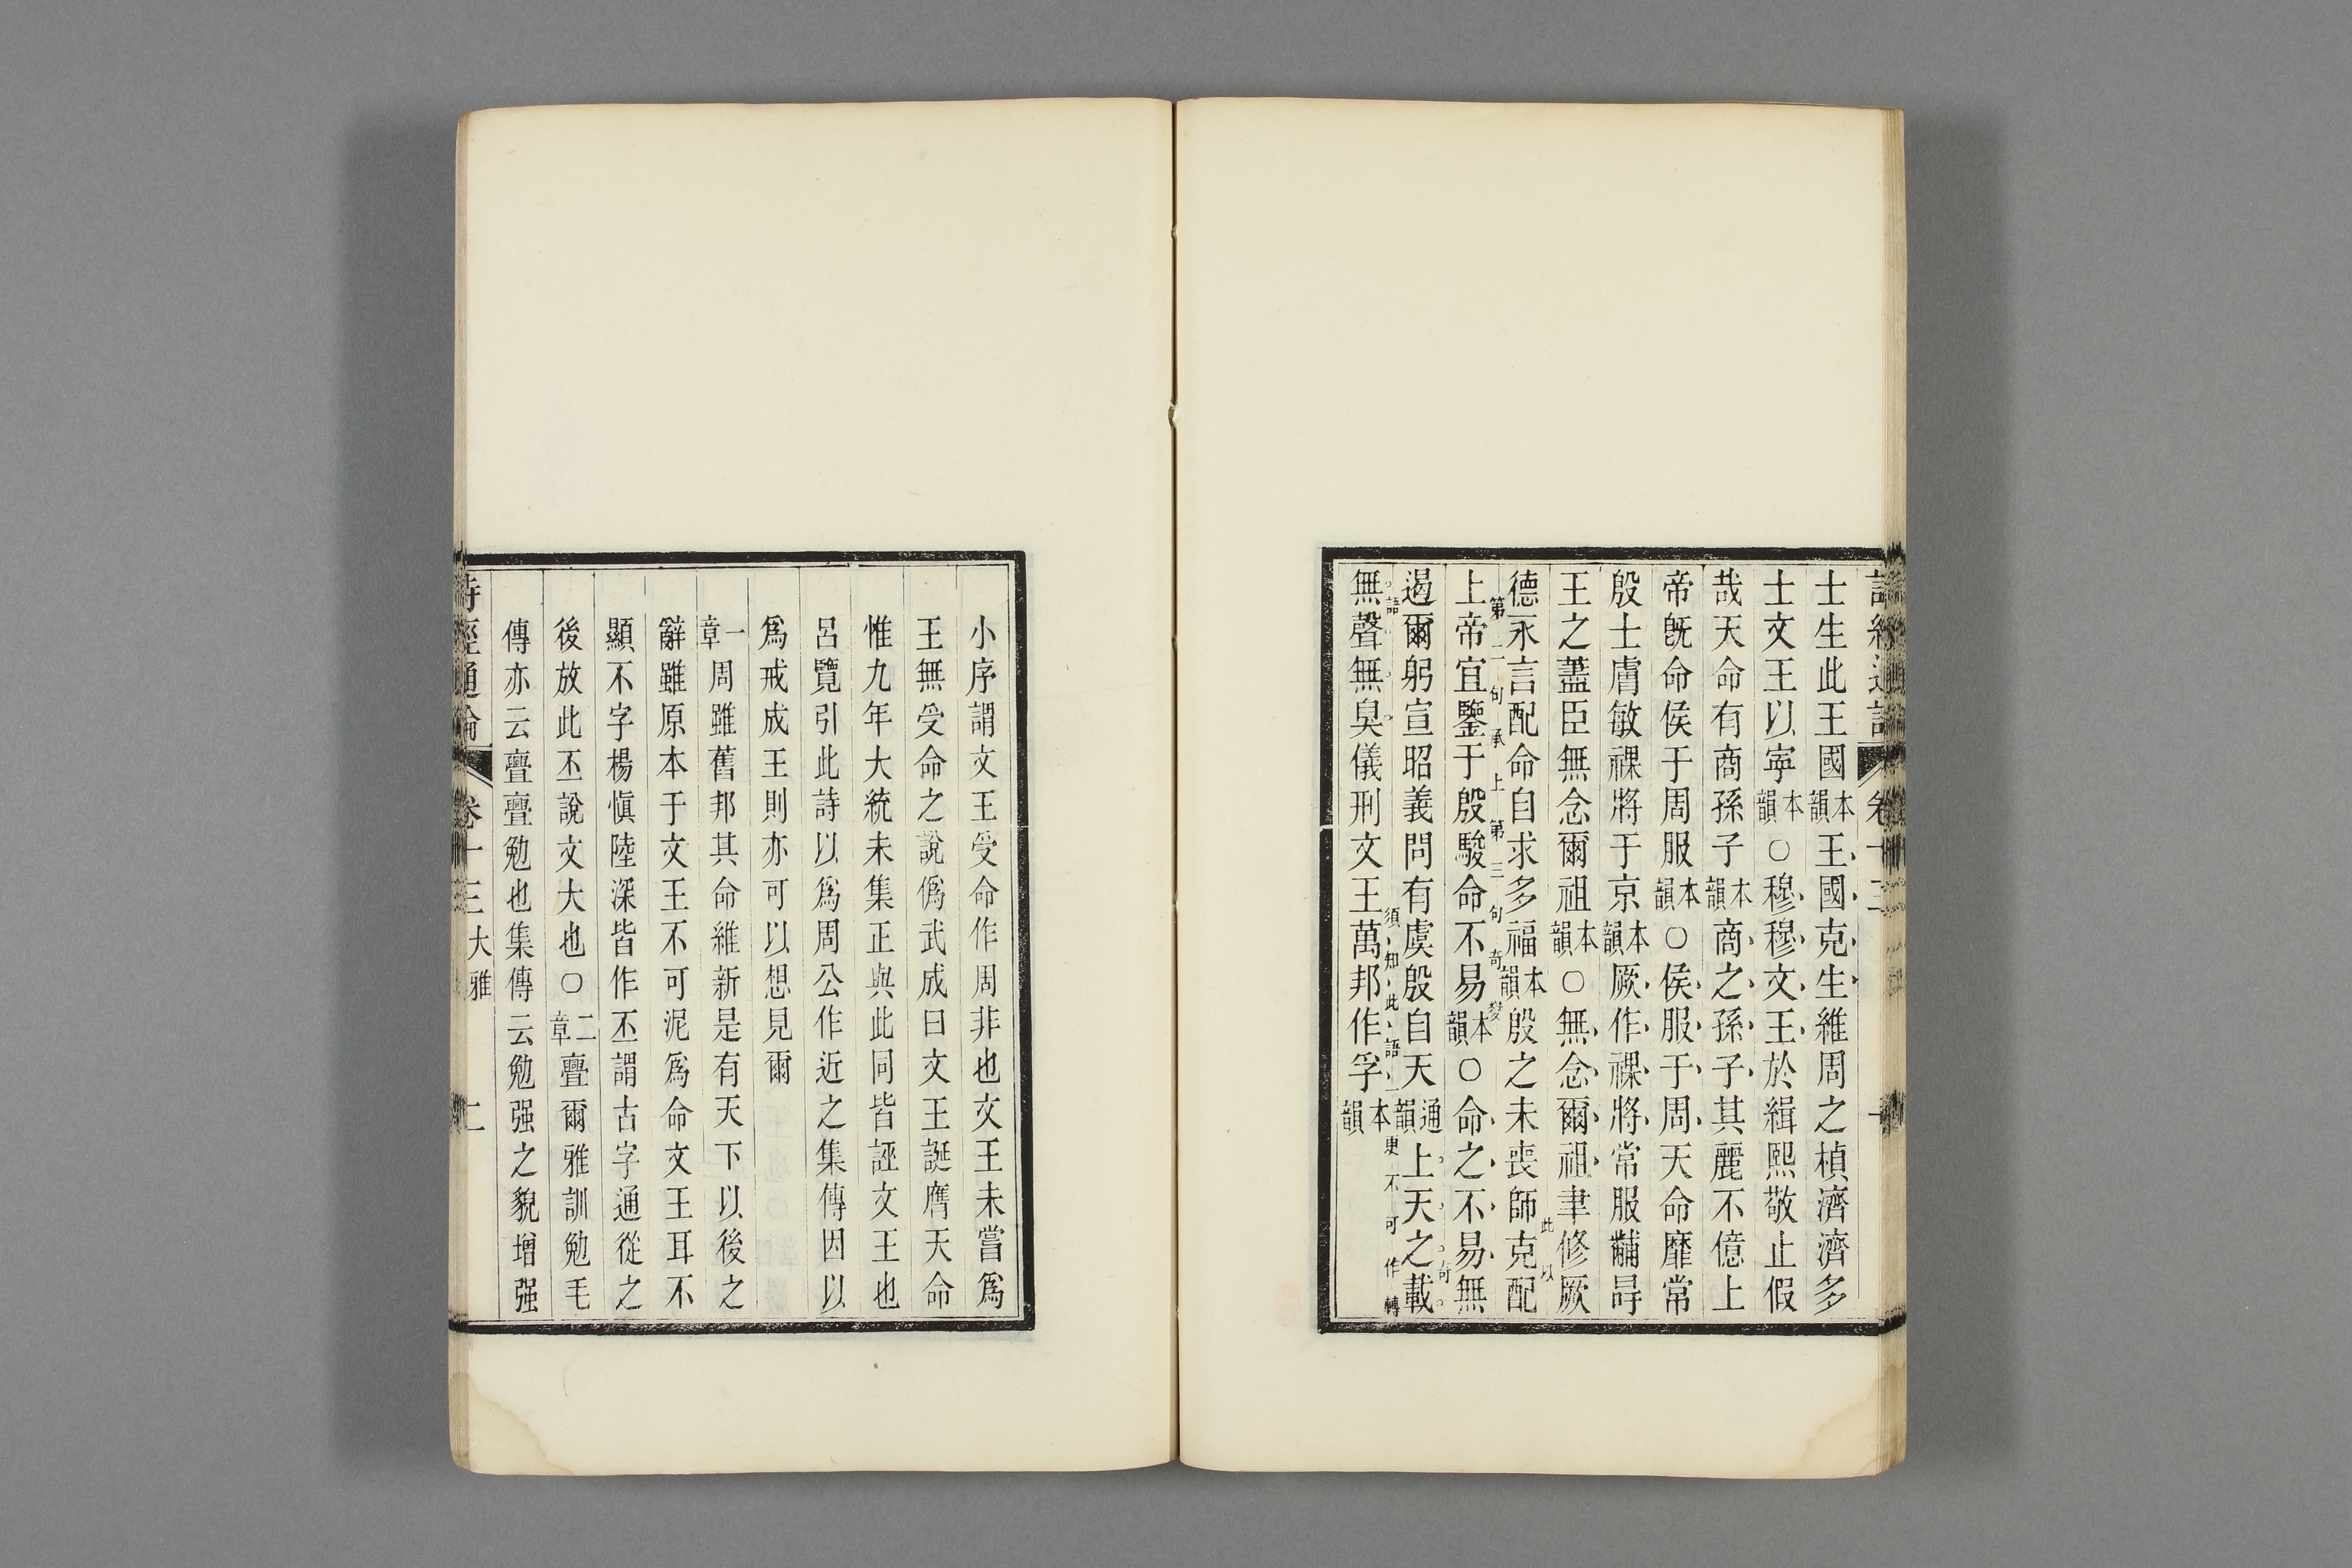 士生此王國本韻王國克生維周之楨濟濟多
士文王以寧本韻○穆穆文王於緝熙敬止假
哉天命有商孫子本韻商之孫子其麗不億上
帝旣命侯于周服本韻○侯服于周天命靡常
殷士膚敏祼將于京本韻厥作祼將常服黼冔
王之藎臣無念爾祖本韻○無念爾祖聿修厥
德永言配命自求多福本韻殷之未喪師克配
此以
上帝宜鑒于殷駿命不易本韻○命之不易無
第二句承上第三句奇變
遏爾躬宣昭義問有虞殷自天通韻上天之載
奇
無聲無臭儀刑文王萬邦作孚本韻
語須知此語更不可作轉
小序謂文王受命作周非也文王未嘗爲
王無受命之說僞武成曰文王誕膺天命
惟九年大統未集正與此同皆誣文王也
呂覽引此詩以爲周公作近之集傳因以
爲戒成王則亦可以想見爾
一章周雖舊邦其命維新是有天下以後之
辭雖原本于文王不可泥爲命文王耳不
顯不字楊愼陸深皆作丕謂古字通從之
後放此丕說文大也○二章亹爾雅訓勉毛
傳亦云亹亹勉也集傳云勉强之貌增强
詩經通論 卷十三 大雅 二